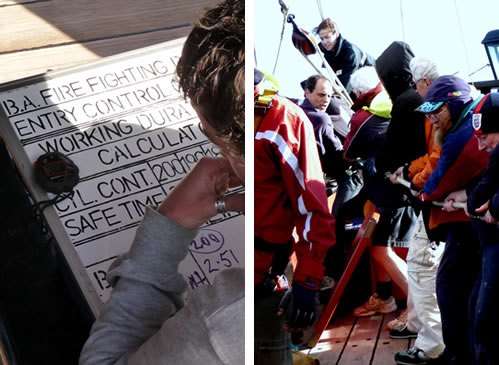 B.A. FIRE FIGHTING
ENTRY CONTROL
WORKING DURA
CALCULAT
CYL. CONT. 200
SAFE TIME
200
2.51